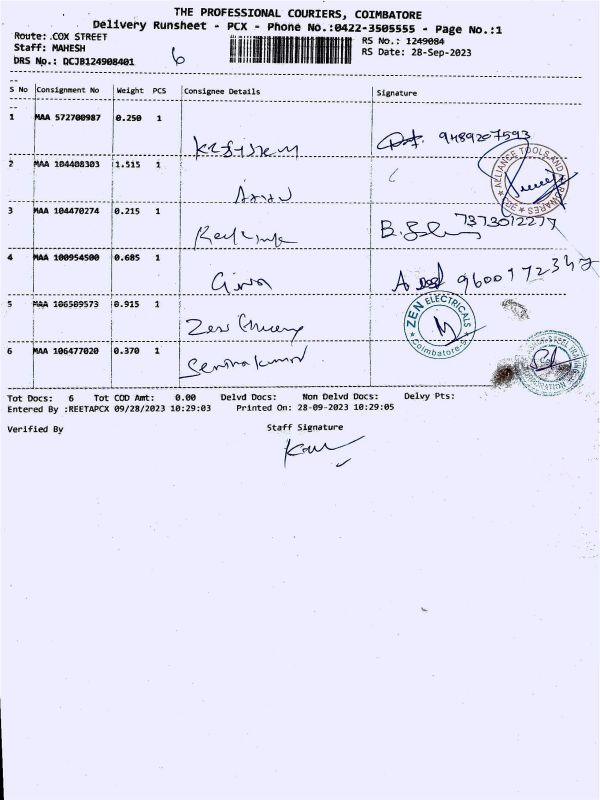 THE PROFESSIONAL COURIERS, COIMBATORE
Delivery Runsheet - PCX - Phone No.:0422-3505555 - Page No.:1
Route: COX STREET
RS No.: 1249084
Staff: MAHESH
RS Date: 28-Sep-2023
DRS No.: DCJB124908401
6
S No Consignment No Weight PCS Consignee Details Signature
1 MAA 572700987 0.250 1
9489207593
2 MAA 104408303 1.515 1
ALLIANCE TOOLS AND
3 MAA 104470274 0.215 1
7373012277
4 MAA 100954500 0.685 1
9600172347
5 MAA 106509573 0.915 1 Zen
ZEN ELECTRICALS
Coimbatore
6 MAA 106477020 0.370 1
Tot Docs: 6 Tot COD Amt: 0.00 Delvd Docs: Non Delvd Docs: Delvy Pts:
Entered By :REETAPCX 09/28/2023 10:29:03 Printed On: 28-09-2023 10:29:05
Verified By Staff Signature